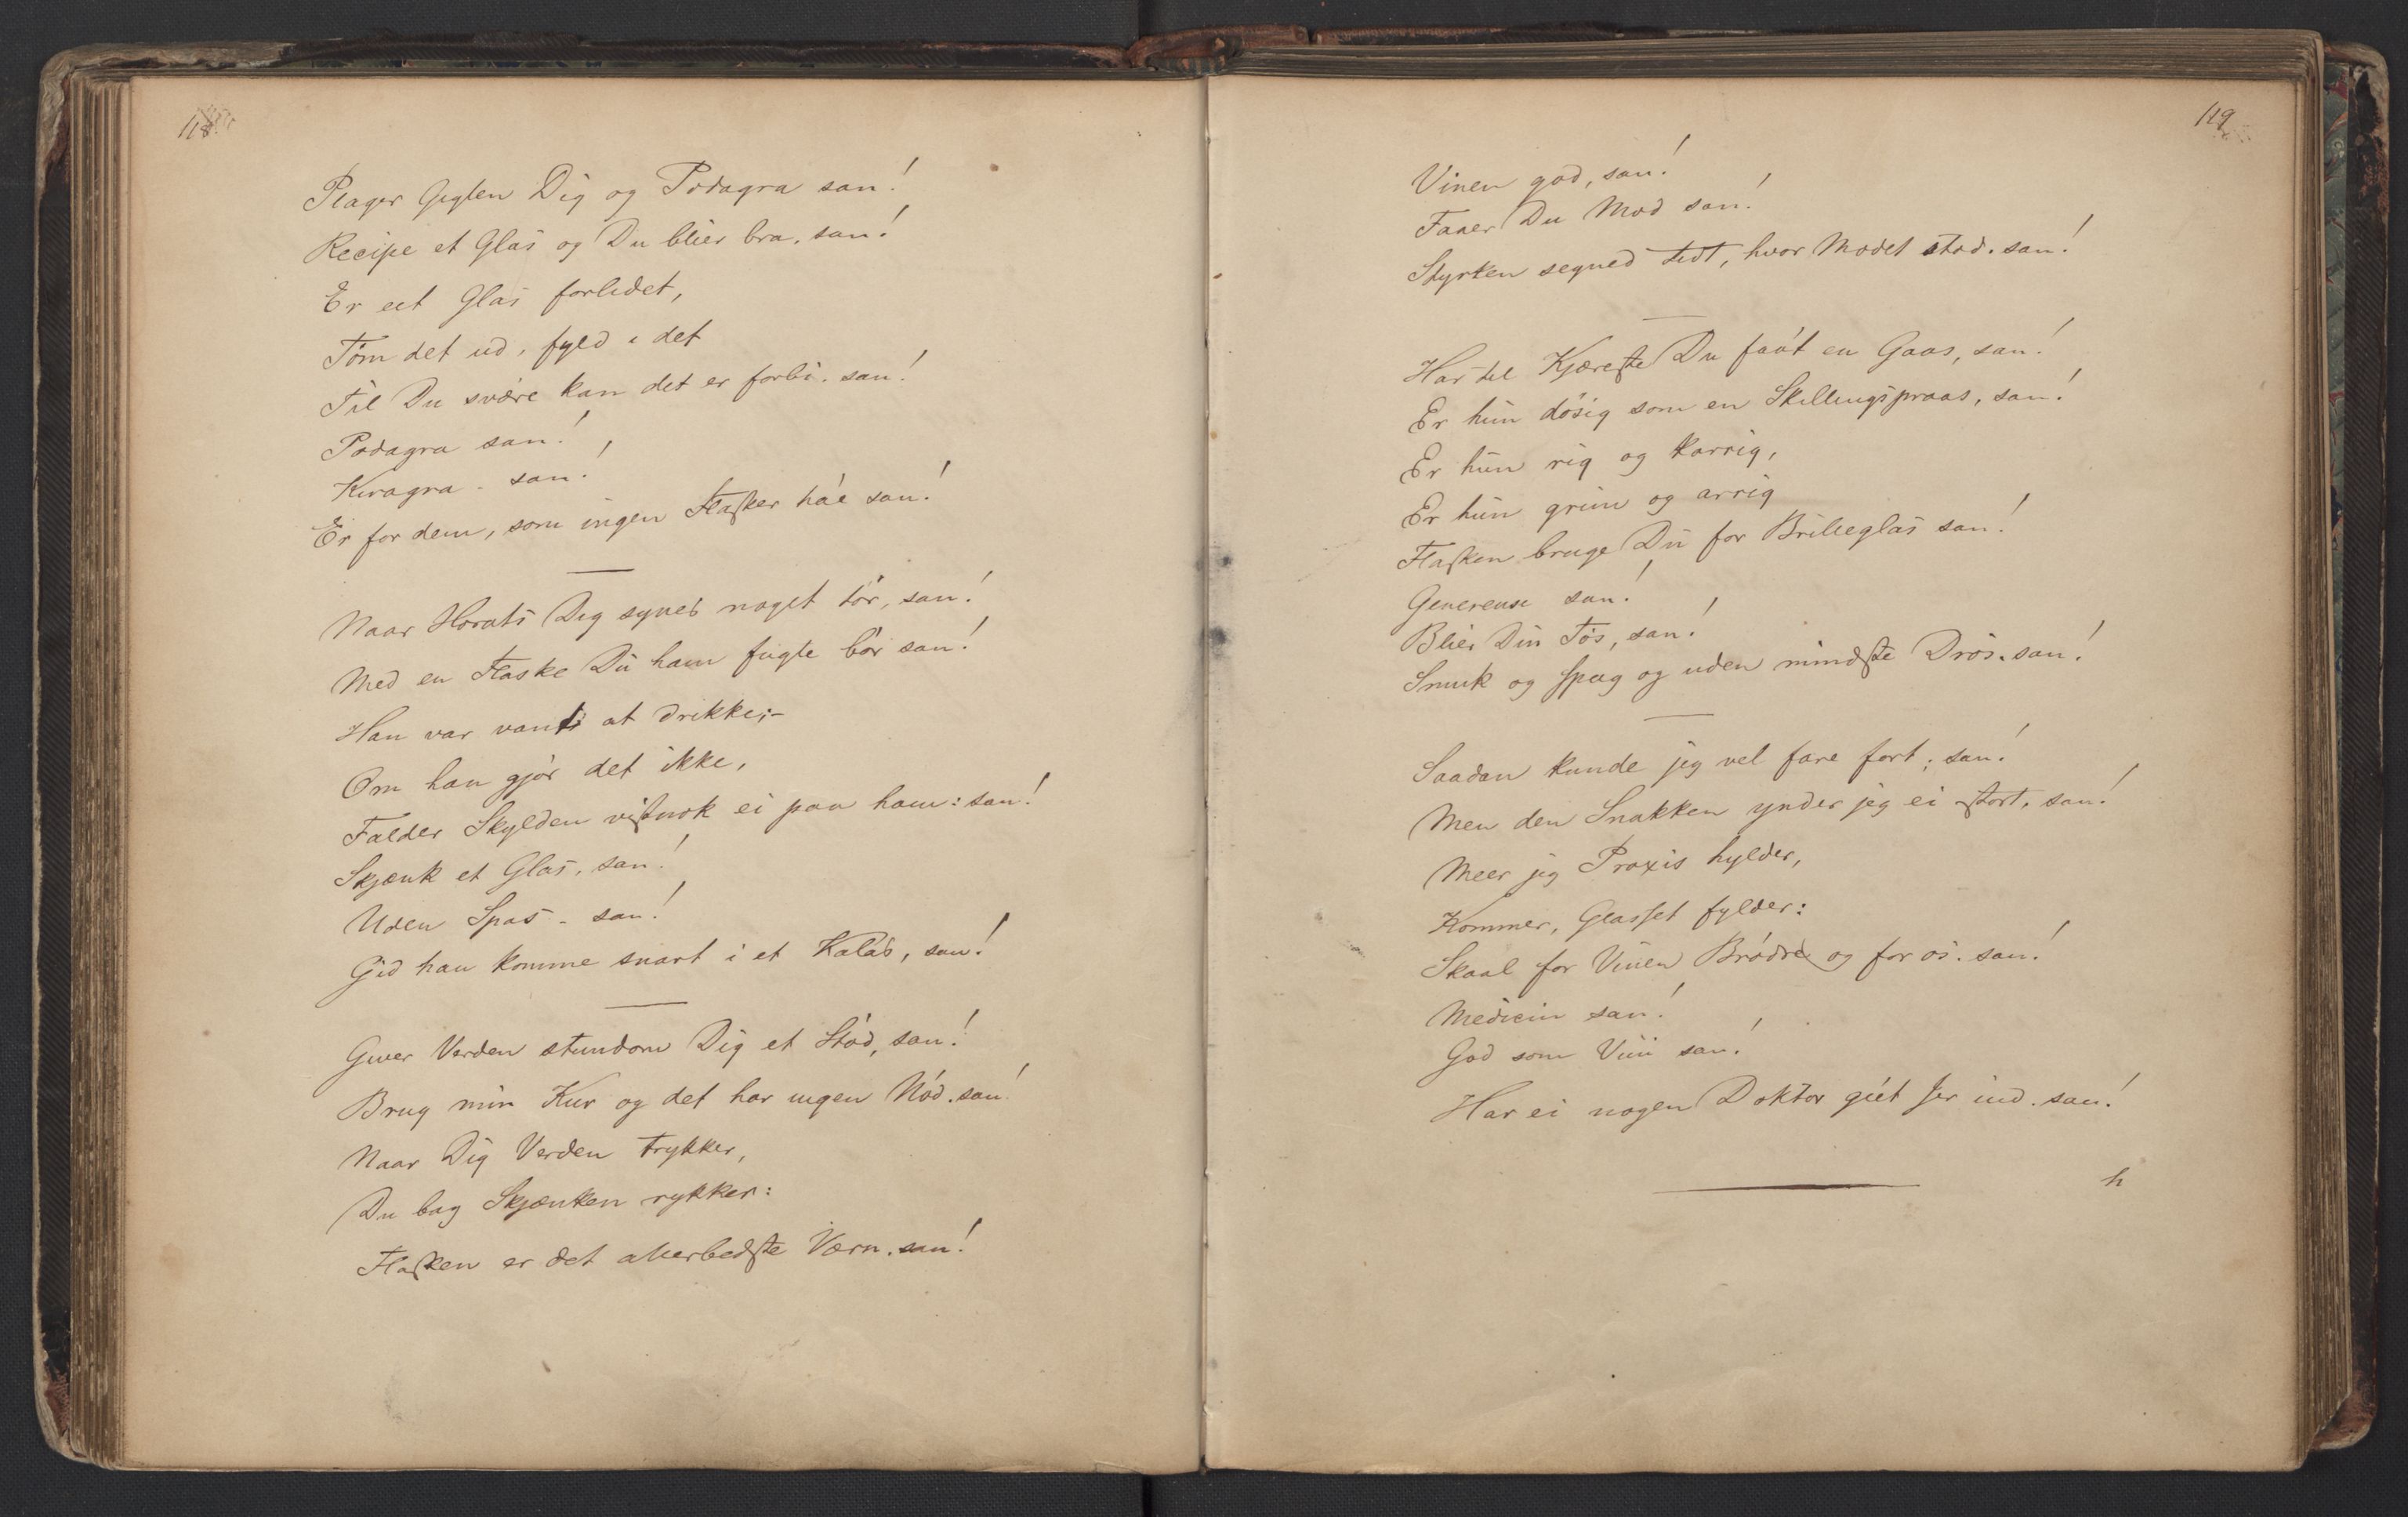 118
Plager Gigten Dig og Podagra san!
Recipe et Glas og Du blier bra, san!
Er eet Glas forlidet,
Töm det ud, fyld i det
Til Du svære kan det er forbi. san!
Podagra san!
Kiragra - san!
Er for dem, som ingen Flasker ha'e san!
Naar Horats Dig synes noget tör, san!
Med en Flaske Du ham fugte bör san!
Han var vant at drikke;-
Om han gjör det ikke,
Falder Skylden vistnok ei paa ham: san!
Skjænk et Glas, san!
Uden Spas - san!
Gid han komme snart i et Kalas, san!
Giver Verden stundom Dig et Stöd, san!
Brug min Kur og det har ingen Nöd. san!
Naar Dig Verden trykker,
Du bag Skjænken rykker:
Flasken er det allerbedste Værn. san!
119
Vinen god, san!
Faaer Du Mod san!
Styrken segned tidt, hvor Modet stod. san!
Har til Kjæreste Du faa't en Gaas, san!
Er hun dösig som en Skillingspraas, san!
Er hun rig og karrig,
Er hun grim og arrig
Flasken bruge Du for Brilleglas san!
Genereuse san!
Blier Din Tös, san!
Smuk og spag og uden mindste Drös. san!
Saadan kunde jeg vel fare fort; san!
Men den Snakken ynder jeg ei stort, san!
Meer jeg Praxis hylder,
Kommer, Glasset fylder:
Skaal for Vinen Brödre og for os. san!
Medicin san!
God som Viin san!
Har ei nogen Doktor gi'et Jer ind. san!
h